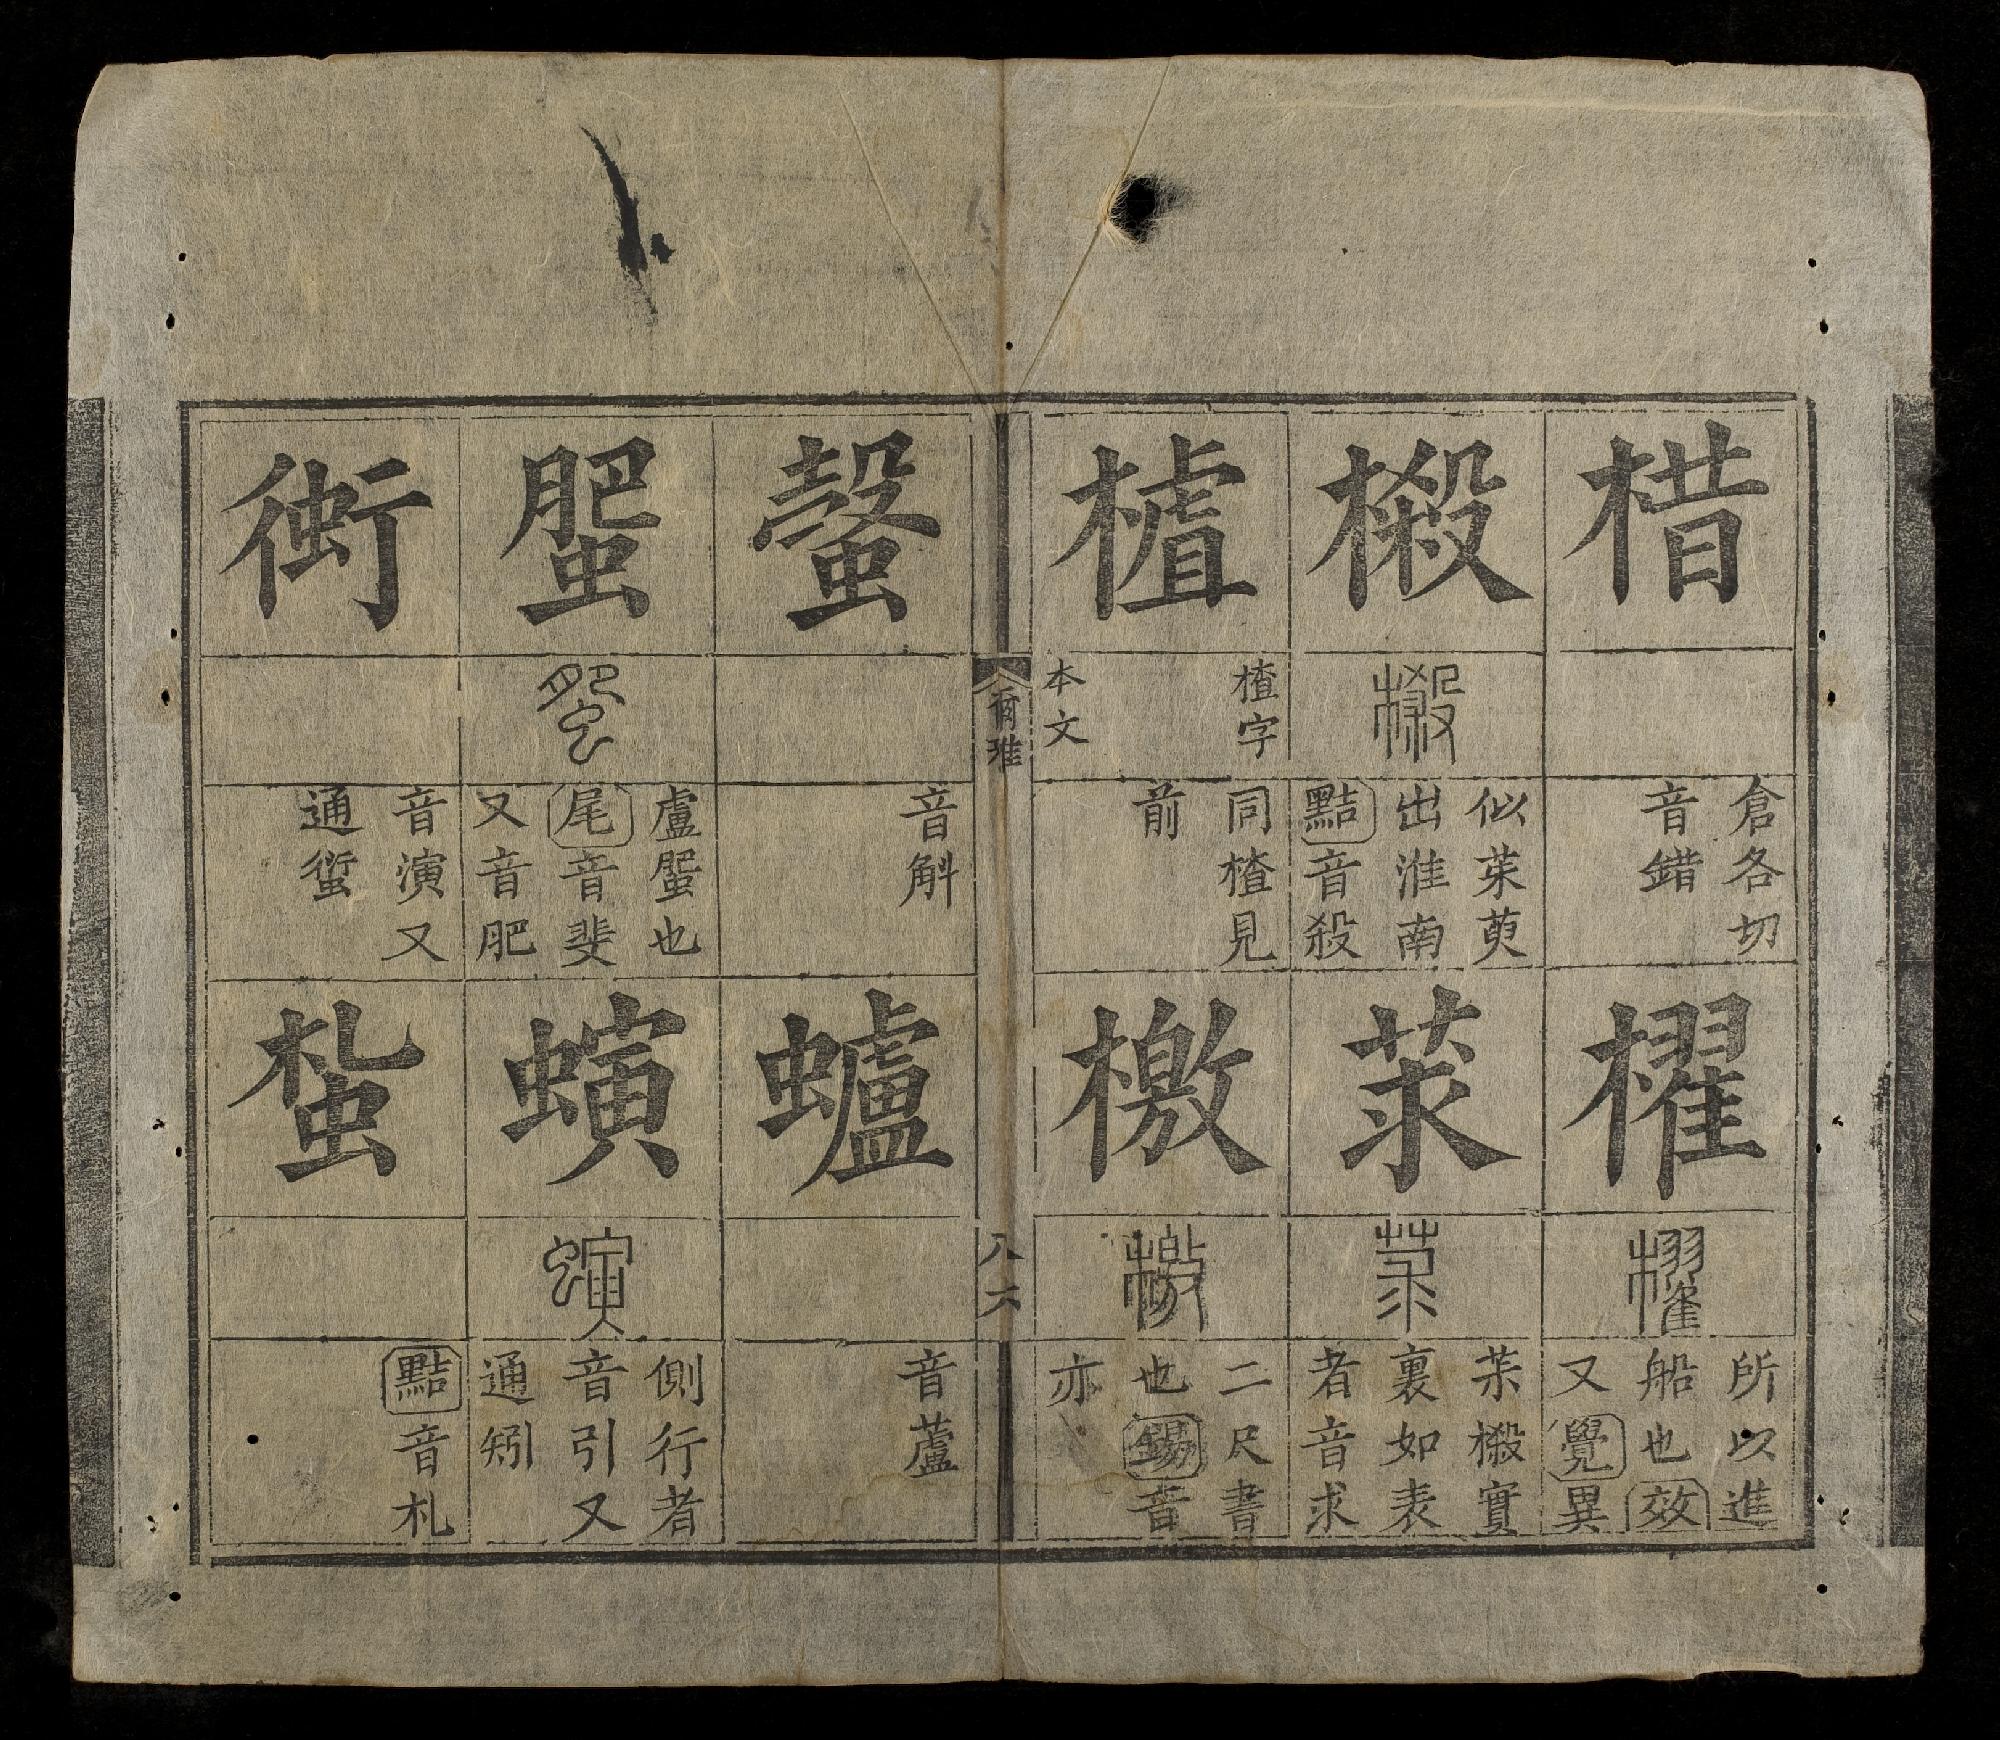 棤
倉各切
音錯
櫂
櫂
所以進
船也效
又覺異
樧
樧
似茱萸
出淮南
黠音殺
莍
莍
茱樧實
裏如表
者音求
樝
楂字
本文
同楂見
前
檄
檄
二尺書
也錫音
亦
爾雅
八六
螜
音斛
蠦
音蘆
蜰
蜰
盧蜰也
尾音斐
又音肥
螾
螾
側行者
音引又
通矧
䘆
音演又
通
蚻
黠音札